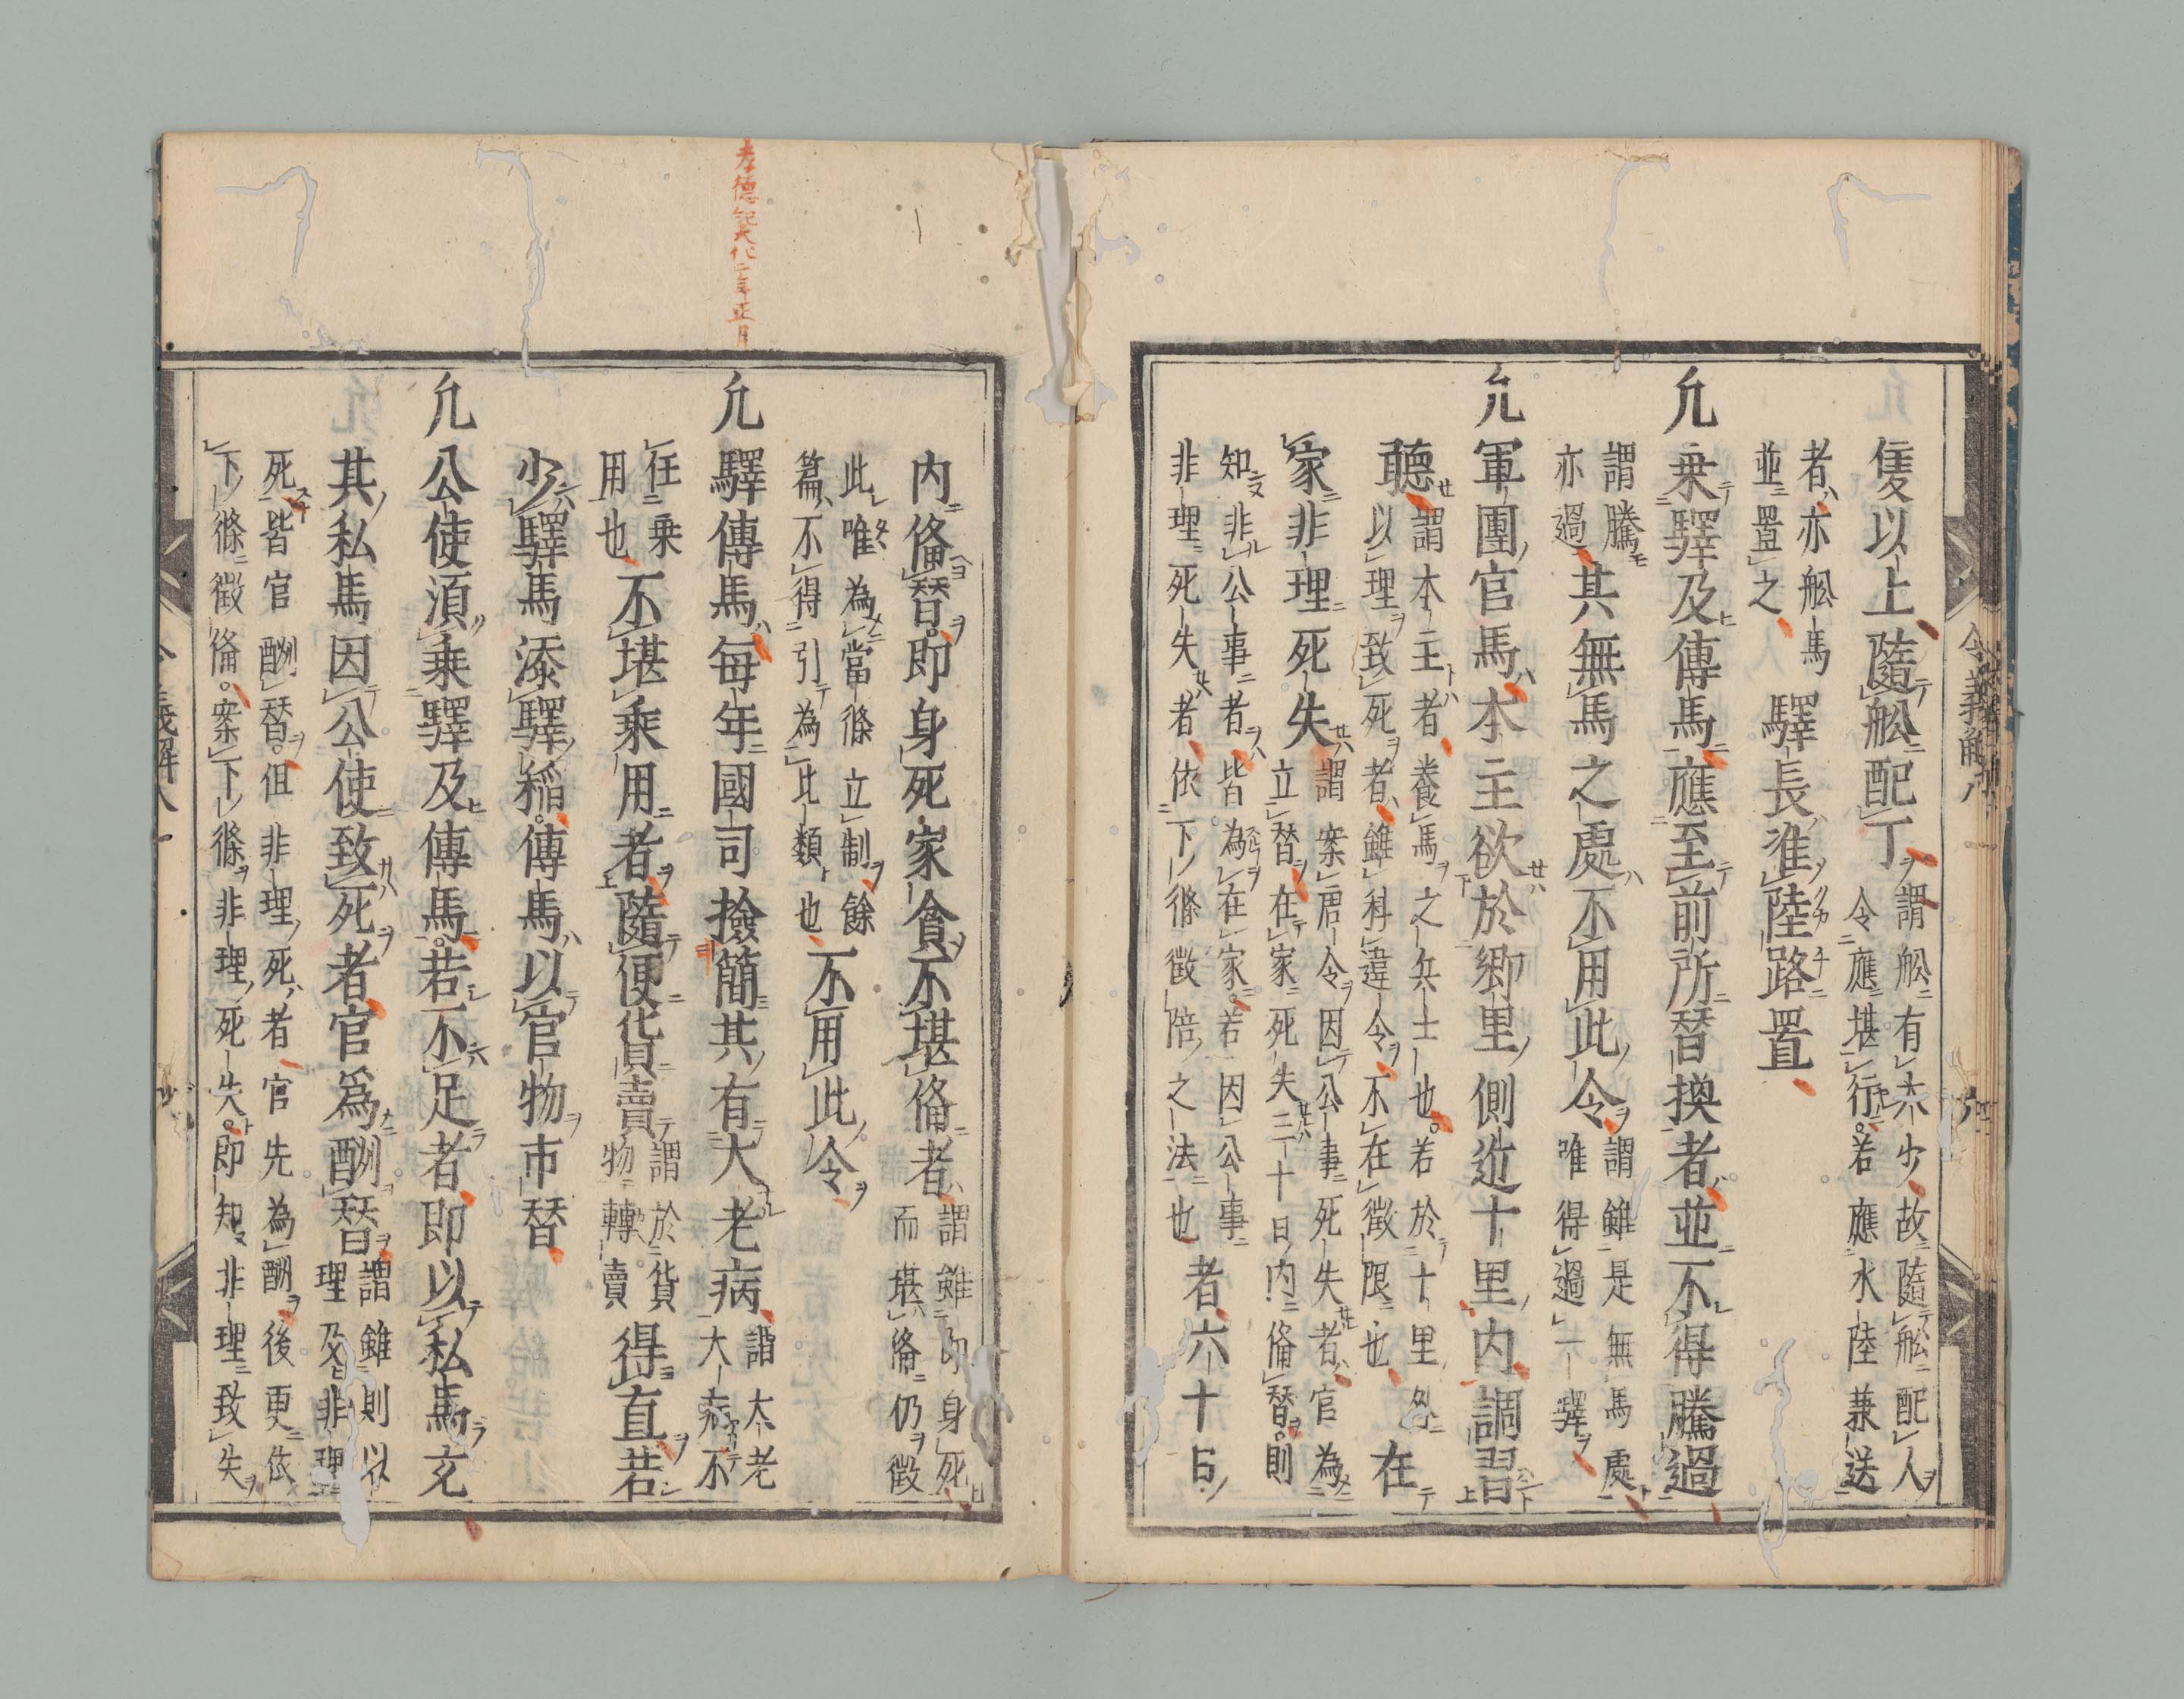 隻以上隨舩配丁謂舩有大少故隨舩配人
令應堪行若應水陸兼送
者亦舩馬
並置之驛長准陸路置
凡乗驛及傳馬應至前所替換者並不得騰過
謂騰
亦過其無馬之處不用此令謂雖是無馬處
唯得過一驛
凡軍團官馬本主欲於郷里側近十里内調習
聴謂本主者養馬之兵士也若於十里外
以理致死者雖科違令不在徴限也在
家非理死失謂案唐令因公事死失者官為
立替在家死失三十日内俻替則
知非公事者皆為在家若因公事
非理死失者依下條徴陪之法也者六十日
内俻替即身死家貧不堪俻者謂雖即身死
而堪俻仍徴
此唯為當條立制餘
篇不得引為比類也不用此令
凡驛傳馬毎年國司撿簡其有大老病謂大老
大病不
任乗
用也不堪乘用者隨便貨賣謂於貨
物轉賣得直若
少驛馬添驛稲傳馬以官物市替
凡公使須乘驛及傳馬若不足者即以私馬充
其私馬因公使致死者官為酬替謂雖則以
理及非理
死皆官酬替但非理死者官先為酬後更依
下條徴俻案下條非理死失即知非理致失
孝德紀大化二年正月
令義解八